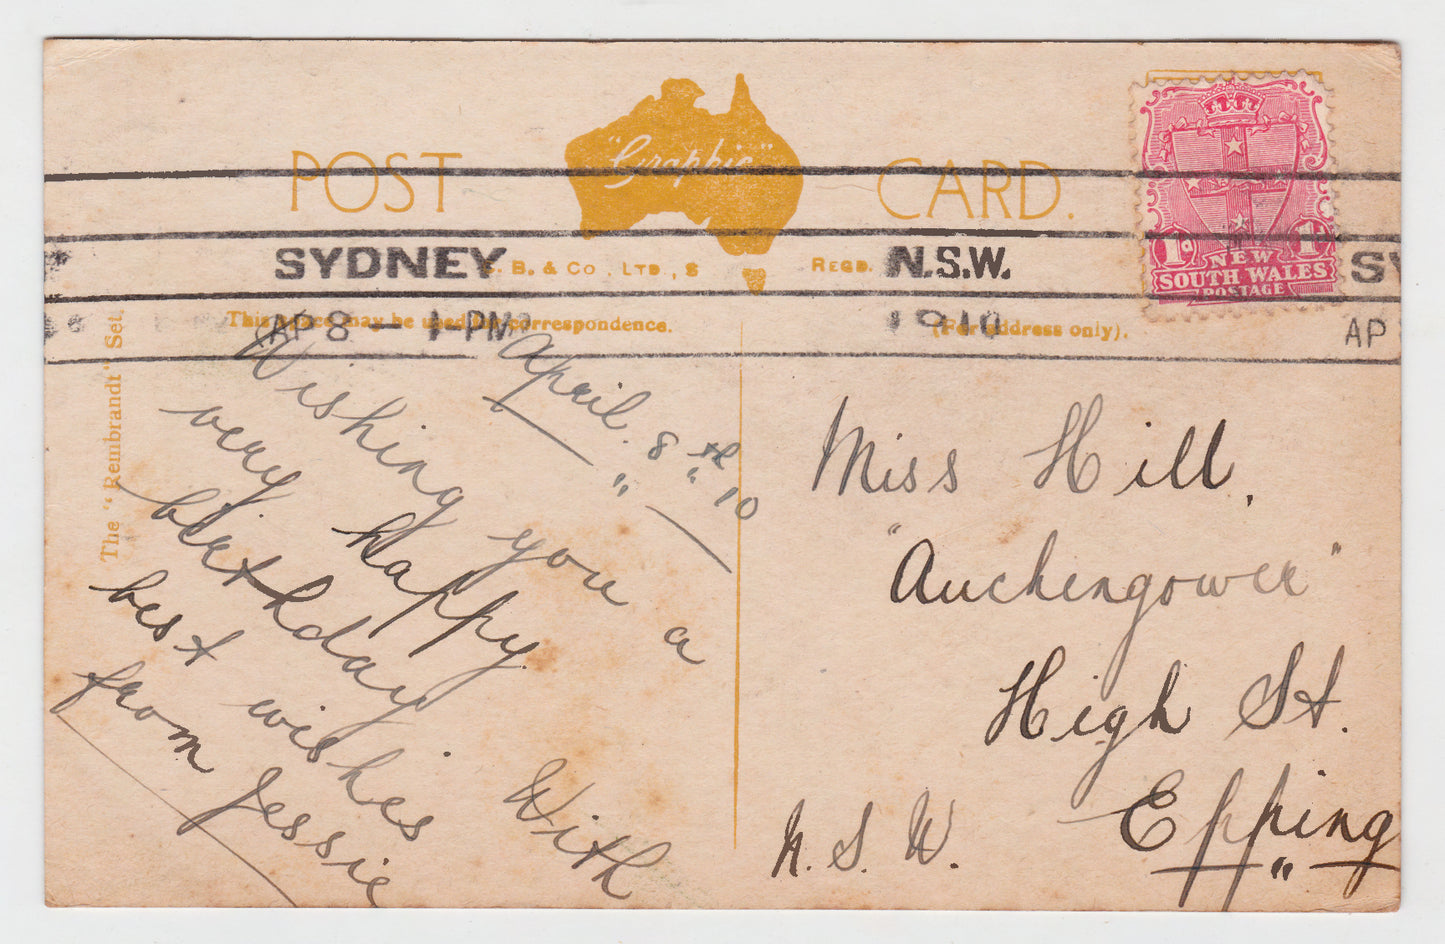 POST "Graphic" CARD.
SYDNEY N.S.W. SY
B. & Co., LTD., S REGD.
AP 8 - 1 - PM 1910 AP
This space may be used for correspondence. (For address only).
The "Rembrandt" Set.
1d 1d
NEW
SOUTH WALES
POSTAGE
April. 8th " 10
Wishing you a
very happy
birthday With
best wishes
from Jessie
Miss Hill,
"Auchengower"
High St.
Epping
N. S. W.